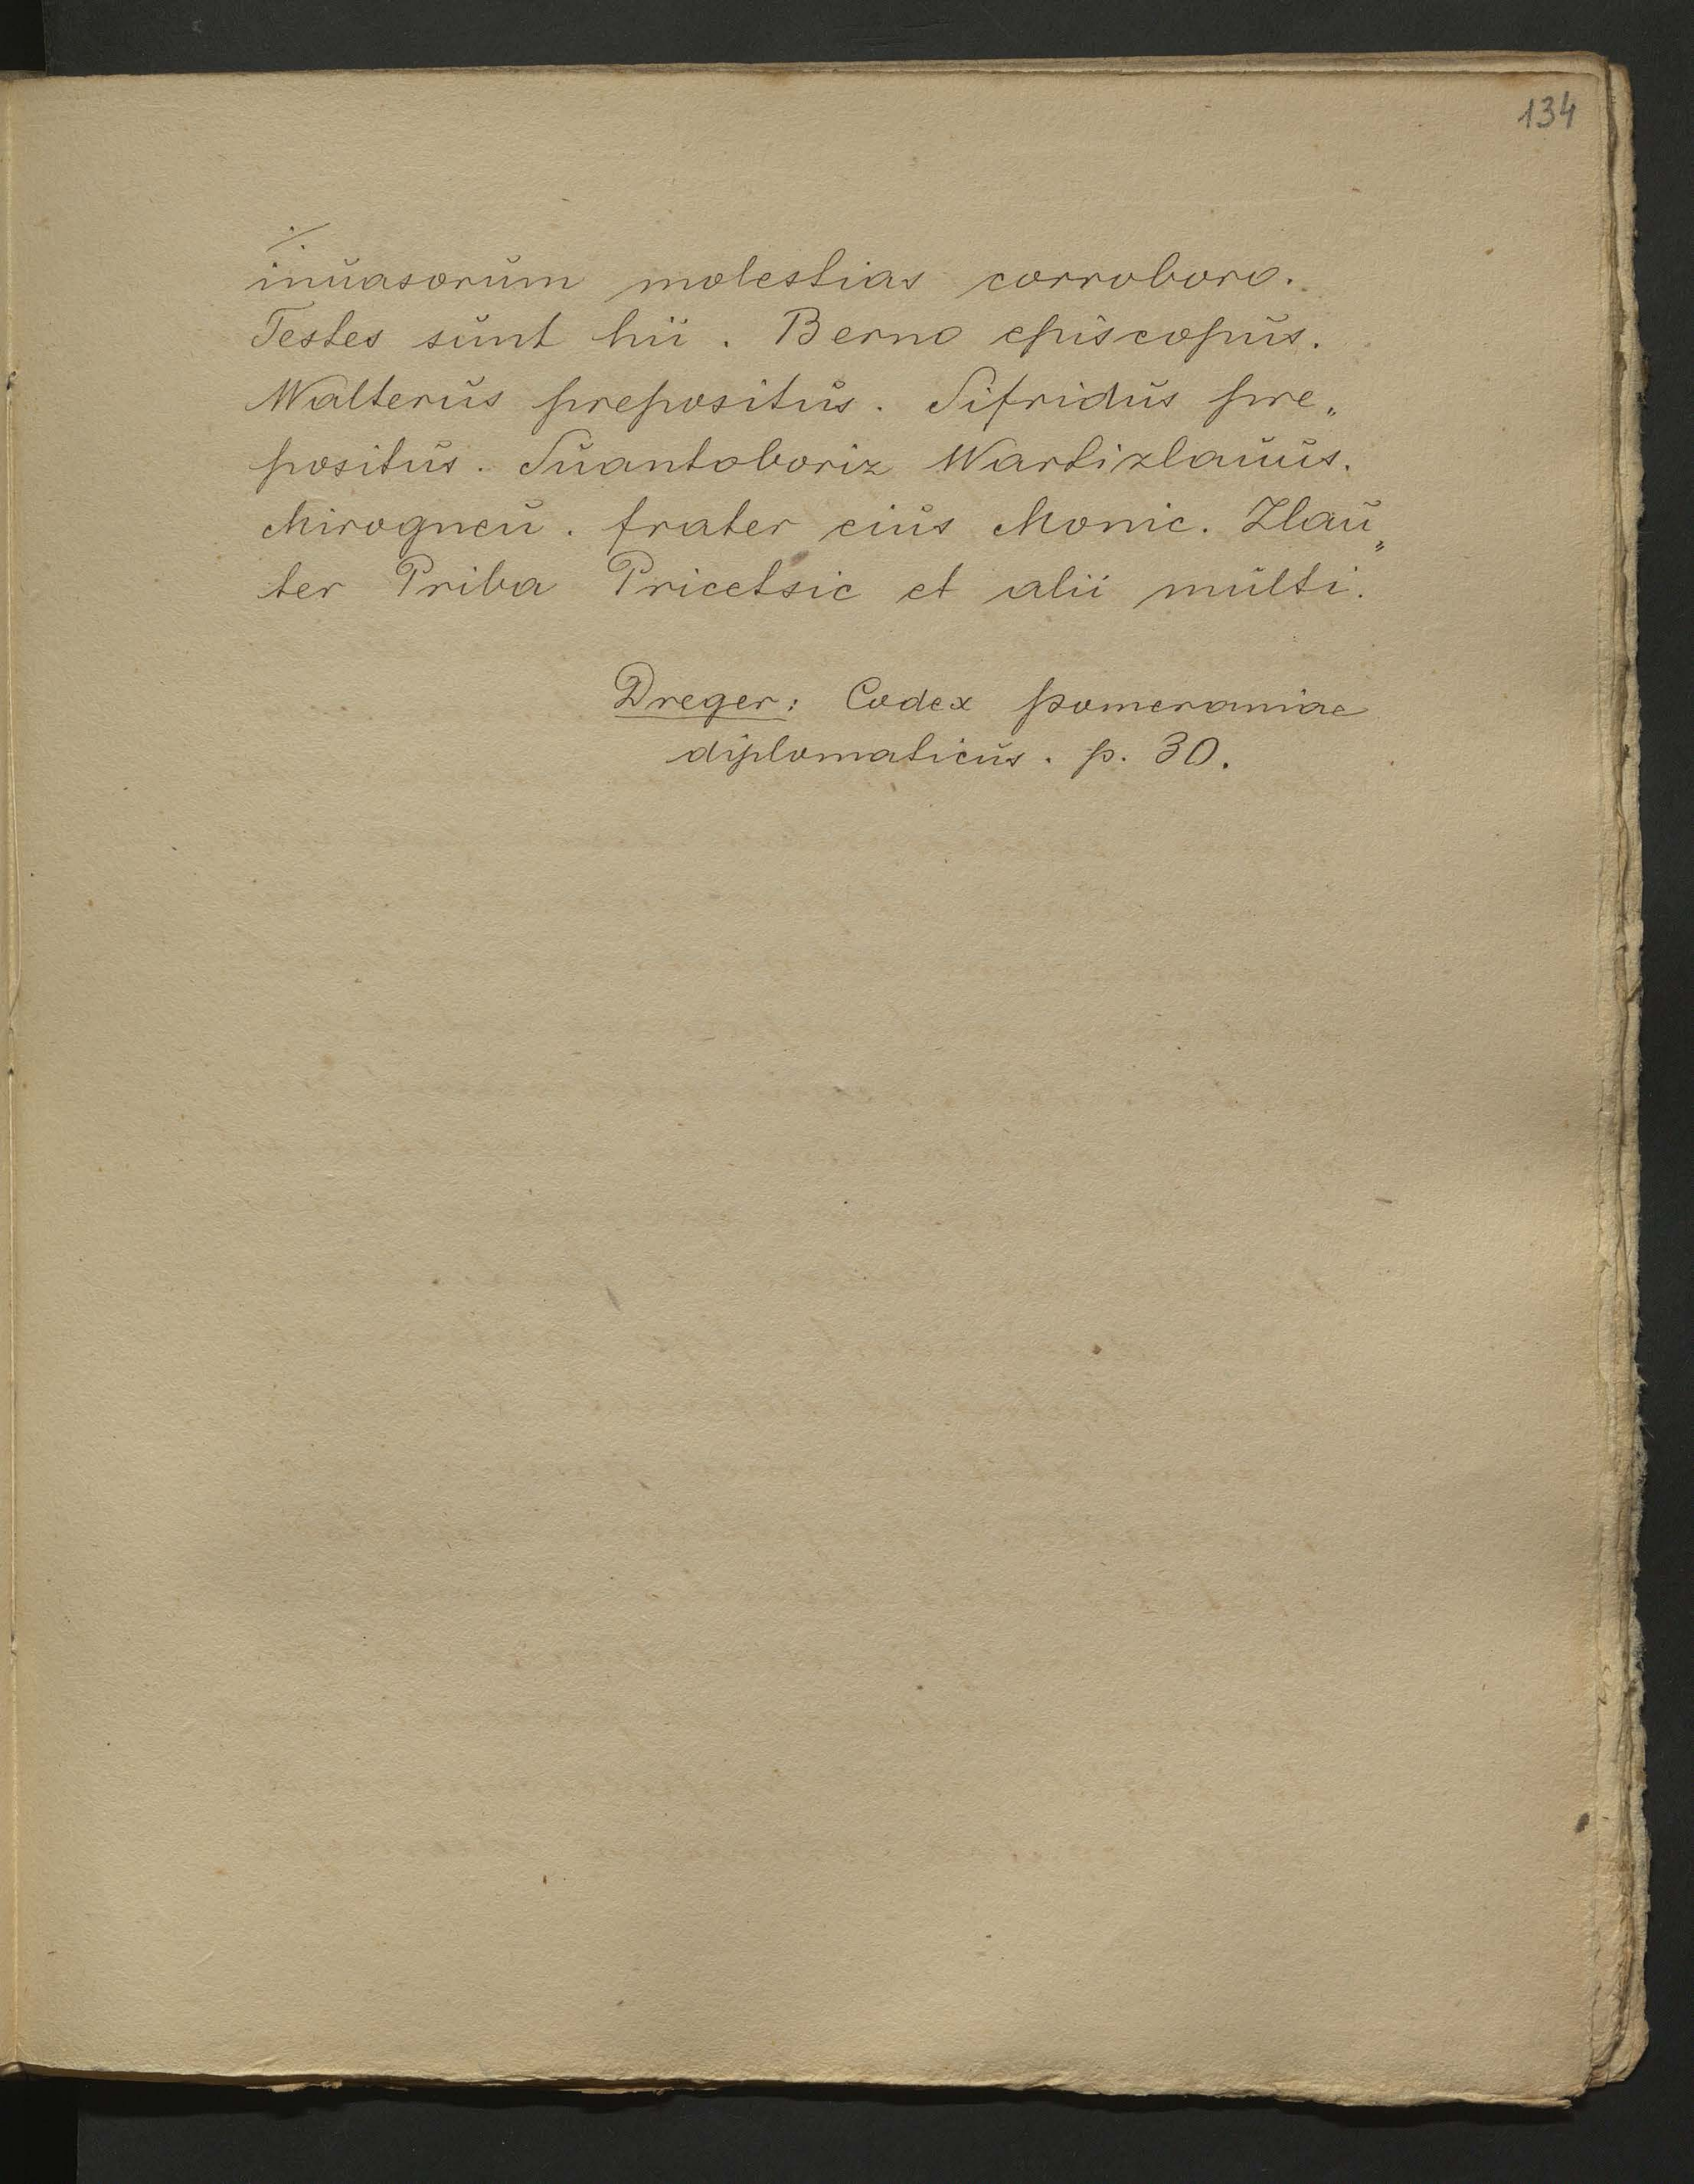 134
./.
inuasorum molestias corroboro.
Testes sunt hii. Berno episcopus.
Walterus prepositus. Sifridus pre„
positus. Suantoboriz Wartizlauus.
Mirogneu. frater eius Monic. Zlau„
ter Priba Pricetsic et alii multi.
Dreger: Codex Pomeraniae
diplomaticus. p. 30.